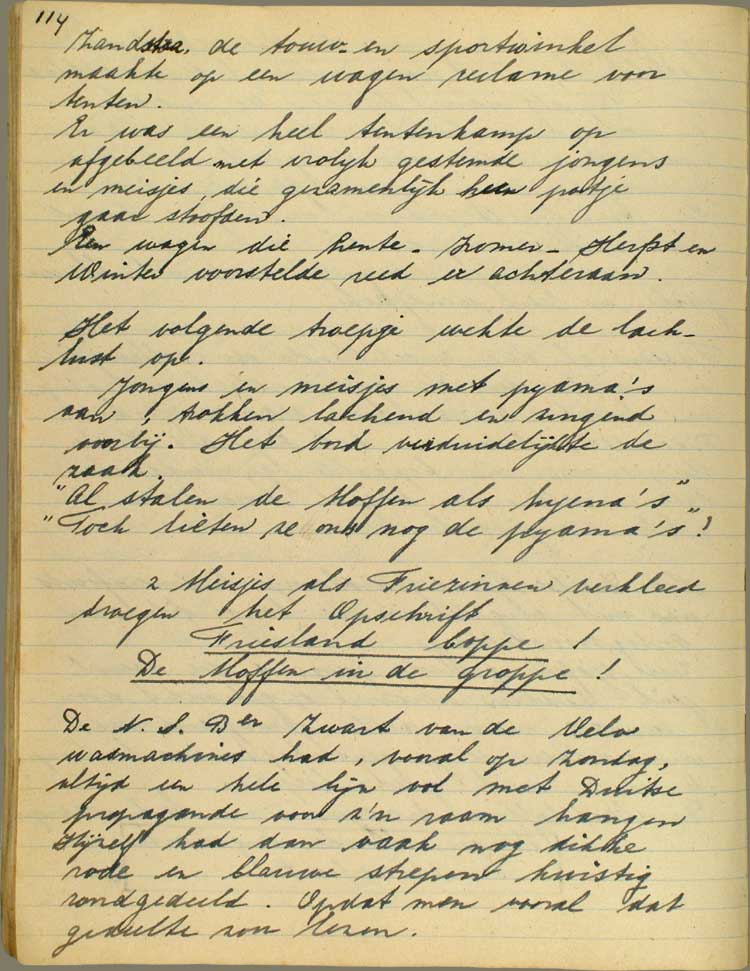 114
Zandstra, de touw- en sportwinkel
maakte op een wagen reclame voor
tenten.
Er was een heel tentenkamp op
afgebeeld met vrolijk gestemde jongens
en meisjes, die gezamenlijk hun potje
gaar stoofden.
Een wagen die Lente- Zomer- Herfst en
Winter voorstelde reed er achteraan.
Het volgende troepje wekte de lach-
lust op.
Jongens en meisjes met pyama's
aan, trokken lachend en zingend
voorbij. Het bord verduidelijkte de
zaak.
"Al stalen de Moffen als hyena's"
"Toch lieten ze ons nog de pyama's"!
2 Meisjes als Friezinnen verkleed
droegen het Opschrift
Friesland boppe!
De Moffen in de groppe!
De N.S.Ber Zwart van de Velo
wasmachines had, vooral op Zondag,
altijd een hele lijn vol met Duitse
propagande voor z'n raam hangen
Hijzelf had dan vaak nog dikke
rode en blauwe strepen kwistig
rondgedeeld. Opdat men vooral dat
gedeelte zou lezen.